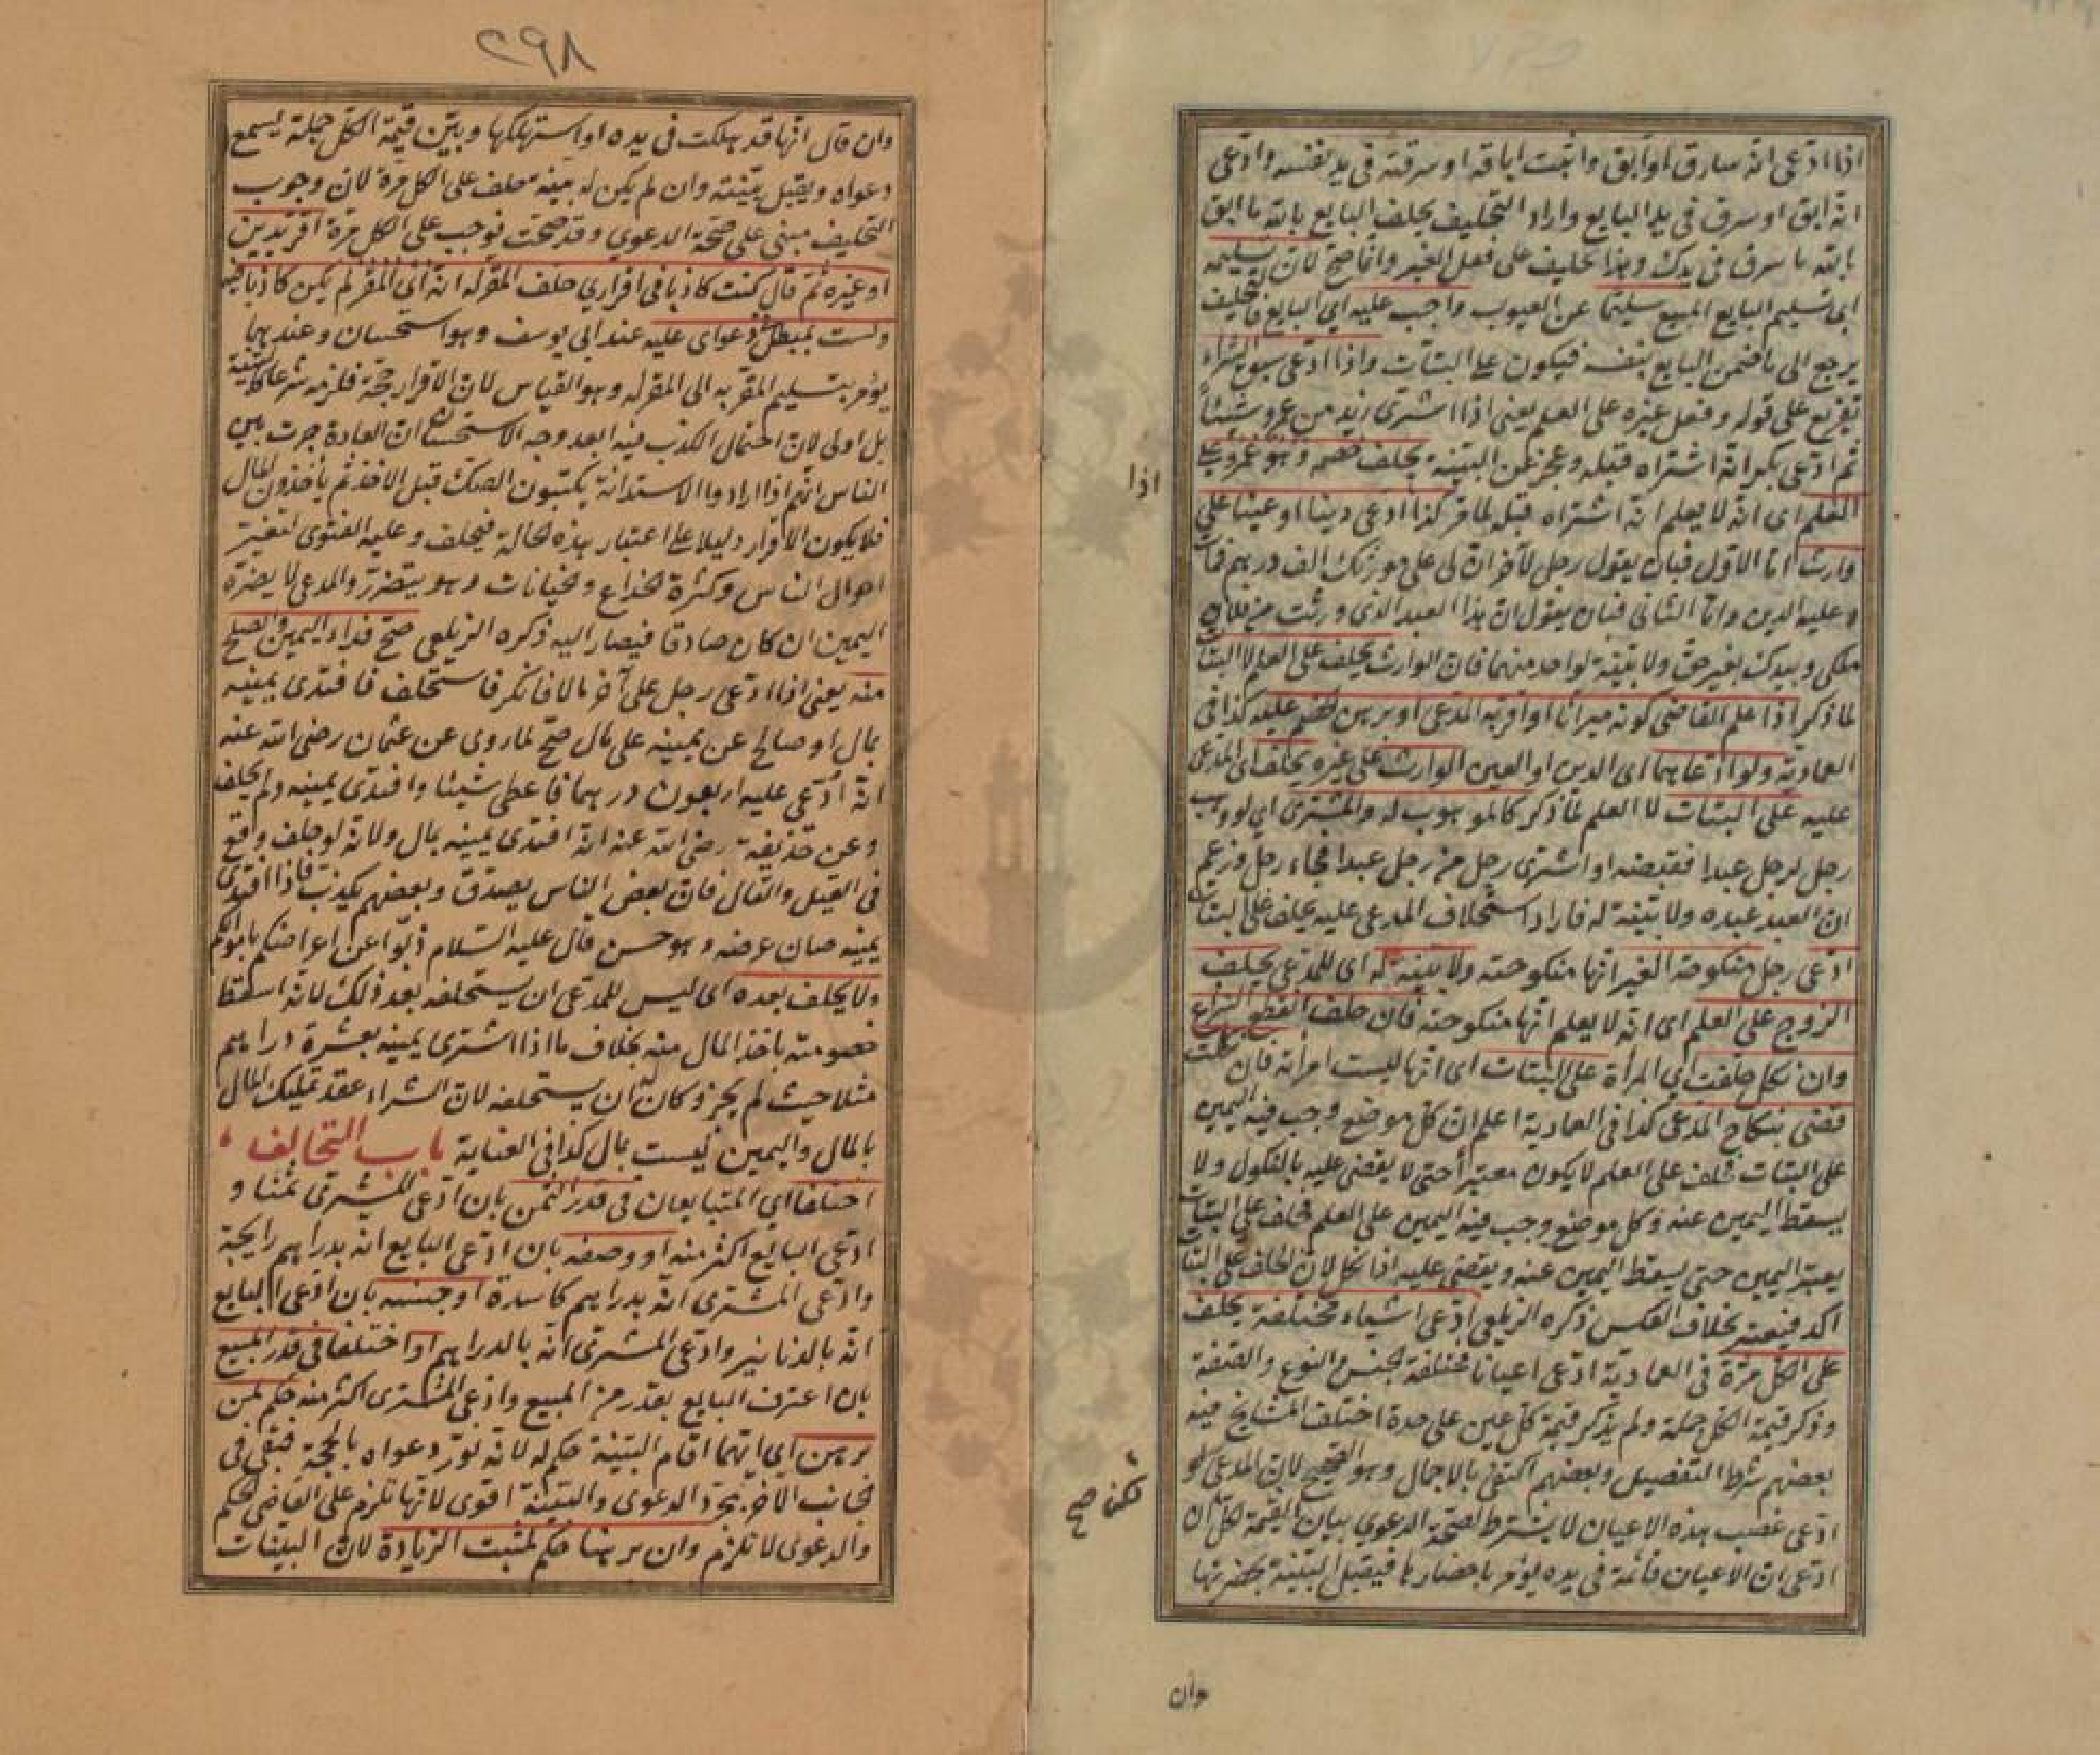 اذا ادّعى انه سارق او آبق واثبت اباقه او سرقته فى يد نفسه وادّعى
انّه ابق او سرق فى يد البايع واراد التحليف يحلف البايع بالله ما ابق
بالله ما سرق فى يدك وهذا تحليف على فعل الغير وانما صحّ لان تسليمه
اى تسليم البايع المبيع سليما عن العيوب واجب عليه اى البايع فالتحليف
يرجع الى ما ضمن البايع بنفسه فيكون على البتات واذا ادّعى سبق الشراء
تفريع على قوله وفعل غيره على العلم يعنى اذا اشترى زيد من عمرو شيئا
ثم ادّعى بكر انّه اشتراه قبله وعجز عن البينة يحلف خصمه وهو عمرو على
العلم اى انّه لا يعلم انّه اشتراه قبله لما مر كذا ادعى دينا او عينا على
اذا
وارث امّا الاوّل فبان يقول رجل لآخر ان لى على مورثك الف درهم فمات
وعليه الدين وامّا الثانى فبان يقول ان هذا العبد الذى ورثت من فلان
ملكى وبيدك بغير حق ولا بيّنة لواحد منهما فان الوارث يحلف على العلم لا البتات
لما ذكر اذا علم القاضى كونه ميراثا او اقر به المدعى او برهن الخصم عليه كذا فى
العمادية ولو ادّعاهما اى الدين او العين الوارث على غيره يحلف اى المدعى
عليه على البتات لا العلم لما ذكر كالموهوب له والمشترى اى لو وهب
رجل لرجل عبدا فقبضه او اشترى رجل من رجل عبدا فجاء رجل وزعم
ان العبد عبده ولا بيّنة له فاراد استحلاف المدعى عليه يحلف على البتات
ادّعى رجل منكوحة الغير انها منكوحته ولا بينة له اى للمدعى يحلف
الزوج على العلم اى انّه لا يعلم انّها منكوحته فان حلف انقطع النزاع
وان نكل حلفت اى المرأة على البتات اى انها ليست امرأته فان نكلت
قضى بنكاح المدعى كذا فى العمادية اعلم ان كل موضع وجب فيه اليمين
على البتات فحلف على العلم لا يكون معتبرا حتى لا يقضى عليه بالنكول ولا
يسقط اليمين عنه وكل موضع وجب فيه اليمين على العلم فحلف على البتات
يعتبر اليمين حتى يسقط اليمين عنه ويقضى عليه اذا نكل لان الحلف على البتات
اكد فيعتبر بخلاف العكس ذكره الزيلعى ادّعى اشياء مختلفة يحلف
على الكل مرّة فى العمادية ادّعى اعيانا مختلفة الجنس والنوع والصفة
وذكر قيمة الكل جملة ولم يذكر قيمة كل عين على حدة اختلف المشايخ فيه
بعضهم شرط التفصيل وبعضهم اكتفى بالاجمال وهو الصحيح لان المدعى لو
ادّعى غصب هذه الاعيان لا يشترط لصحة الدعوى بيان القيمة لكل ان
لكن صح
ادّعى ان الاعيان قائمة فى يده يؤمر باحضارها فيقبل البيّنة بحضرتها
وان
٢٩٨
وان قال انّها قد هلكت فى يده او استهلكها وبيّن قيمة الكل جملة يسمع
دعواه ويقبل بيّنته وان لم يكن له بينة يحلف على الكل مرة لان وجوب
التحليف مبنى على صحّة الدعوى وقد صحّت فوجب على الكل مرّة اقر بدين
او غيره ثم قال كنت كاذبا فى اقرارى حلف المقر له انّه اى المقر لم يكن كاذبا فيه
ولست بمبطل فى دعواى عليه عند ابى يوسف وهو استحسان وعندهما
يؤمر بتسليم المقر به الى المقر له وهو القياس لان الاقرار حجة ملزمة شرعا كالبينة
بل اولى لان احتمال الكذب فيه ابعد وجه الاستحسان ان العادة جرت بين
الناس انّهم اذا ارادوا الاستدانة يكتبون الصك قبل الاخذ ثم يأخذون المال
فلا يكون الاقرار دليلا على اعتبار هذه الحالة فيحلف وعليه الفتوى لتغير
احوال الناس وكثرة الخداع والخيانات وهو يتضرر والمدعى لا يضره
اليمين ان كان صادقا فيصار اليه ذكره الزيلعى صحّ فداء اليمين والصلح
منه يعنى اذا ادّعى رجل على آخر مالا فانكر فاستحلف فافتدى يمينه
بمال او صالح عن يمينه على مال صحّ لما روى عن عثمان رضى الله عنه
انّه ادّعى عليه اربعون درهما فاعطى شيئا وافتدى يمينه ولم يحلف
وعن حذيفة رضى الله عنه انّه افتدى يمينه بمال ولانه لو حلف وقع
فى القيل والقال فان بعض الناس يصدّق وبعضهم يكذب فاذا افتدى
يمينه صان عرضه وهو حسن قال عليه السّلام ذبّوا عن اعراضكم باموالكم
ولا يحلف بعده اى ليس للمدعى ان يستحلفه بعد ذلك لانّه اسقط
خصومته باخذ المال منه بخلاف ما اذا اشترى يمينه بعشرة دراهم
مثلا حيث لم يجز وكان له ان يستحلفه لان الشراء عقد تمليك المال
بالمال واليمين ليست بمال كذا فى العناية باب التحالف
اختلفا اى المتبايعان فى قدر الثمن بان ادّعى المشترى ثمنا و
ادّعى البايع اكثر منه او وصفه بان ادّعى البايع انّه بدراهم رايجة
وادّعى المشترى انّه بدراهم كاسدة او جنسه بان ادّعى البايع
انّه بالدنانير وادّعى المشترى انّه بالدراهم او اختلفا فى قدر المبيع
بان اعترف البايع بقدر من المبيع وادّعى المشترى اكثر منه حكم لمن
برهن اى ايّهما اقام البيّنة حكم له لانّه نوّر دعواه بالحجة فبقى فى
الجانب الآخر مجرّد الدعوى والبيّنة اقوى لانها تلزم على القاضى الحكم
والدعوى لا تلزم وان برهنا حكم لمثبت الزيادة لان البينات